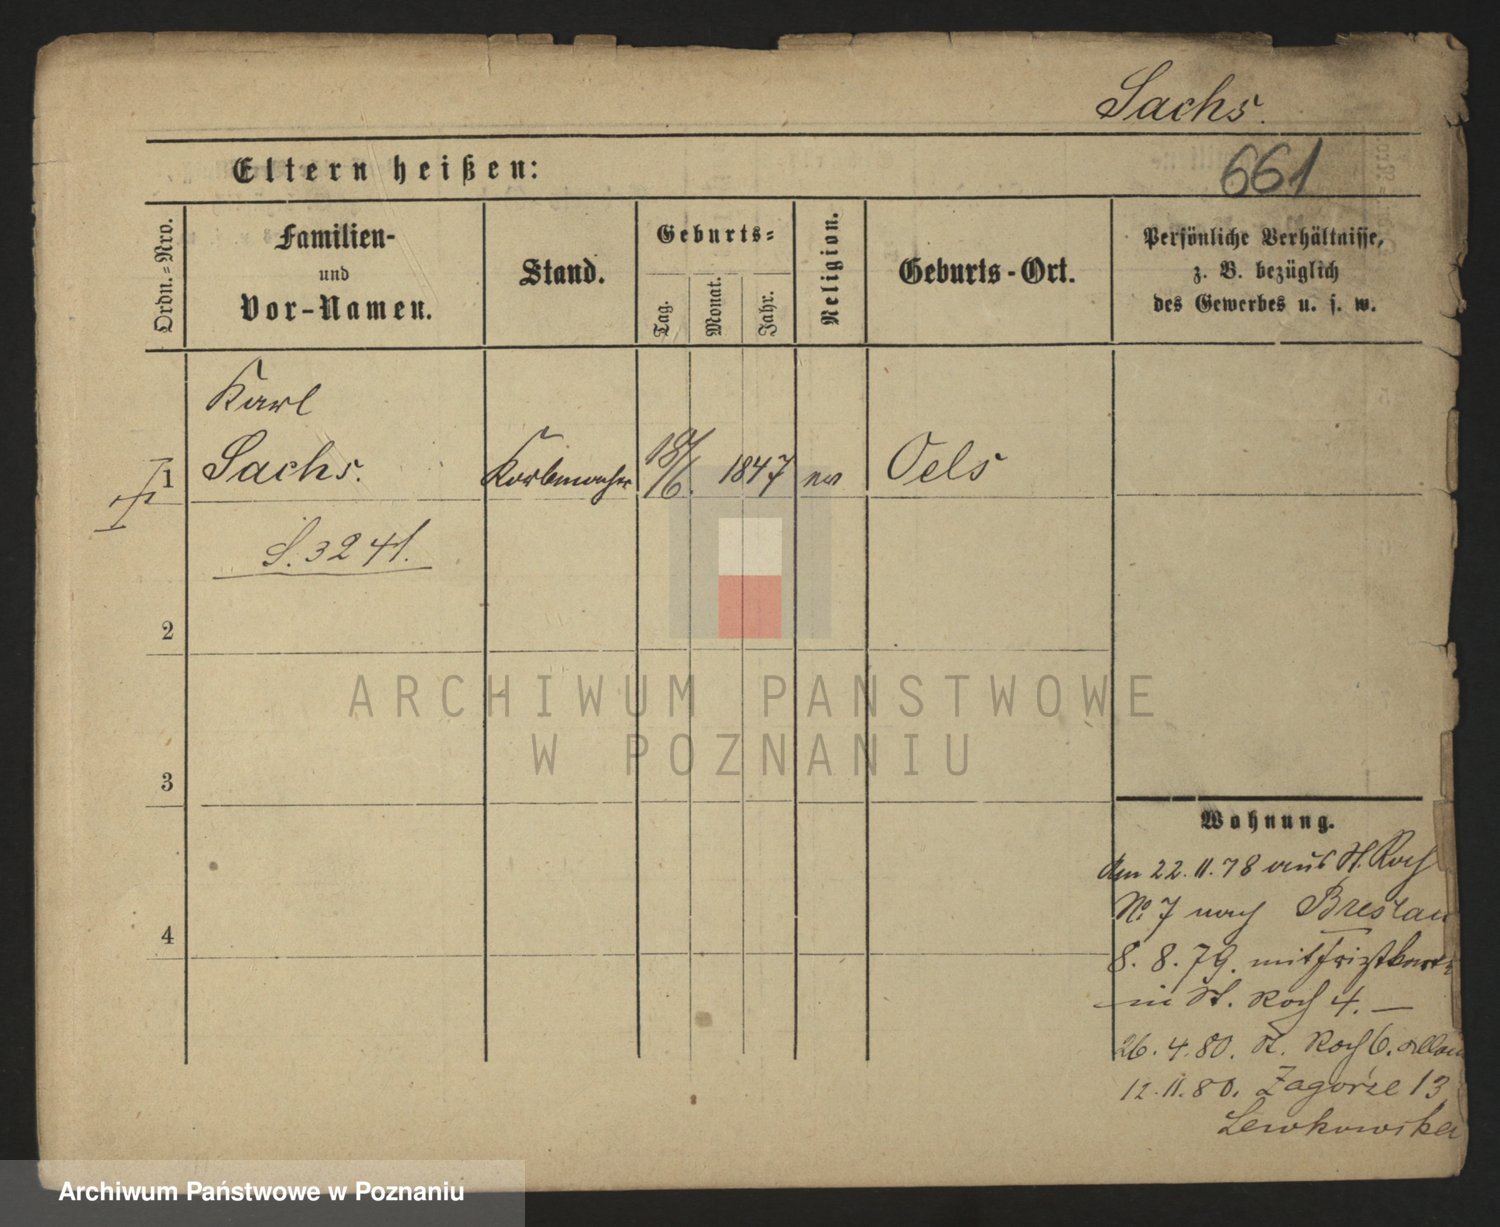 Sachs.
661
Eltern heißen:
Ordn.=Nro.
Familien-
und
Vor-Namen.
Stand.
Geburts=
Tag.
Monat.
Jahr.
Religion.
Geburts-Ort.
Persönliche Verhältnisse,
z. B. bezüglich
des Gewerbes u. s. w.
Karl
1 Sachs. Korbmacher 1847 ev Oels
S. 3241.
2
3
4
ARCHIWUM PAŃSTWOWE
W POZNANIU
Wohnung.
Am 22.11.78 aus St. Roch
No 7 nach Breslau
8. 8. 79. mit
in St. Roch 4. —
26. 4. 80. St. Roch 6.
12.11.80. Zagorze 13
Lewkowska
Archiwum Państwowe w Poznaniu